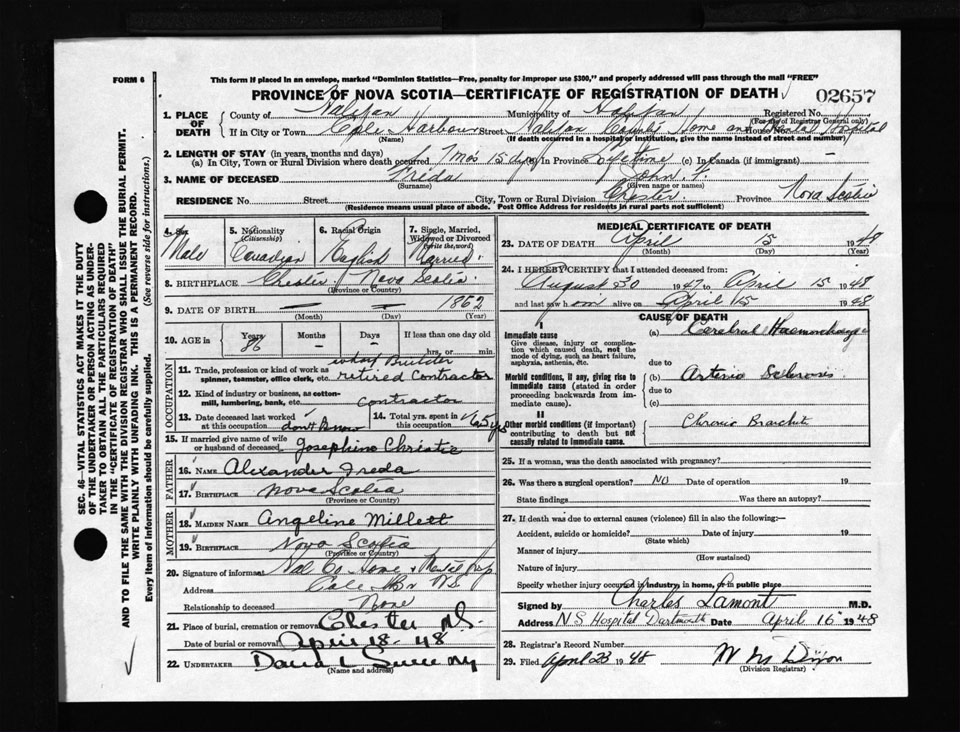 FORM 6
This form if placed in an envelope, marked "Dominion Statistics—Free, penalty for improper use $300," and properly addressed will pass through the mail "FREE"
PROVINCE OF NOVA SCOTIA—CERTIFICATE OF REGISTRATION OF DEATH
02657
1. PLACE OF DEATH
County of Halifax Municipality of Halifax Registered No.
(For use of Registrar General only)
If in City or Town Cole Harbour Street Halifax County Home and Hospital House No.
(Name) (If death occurred in a hospital or institution, give the name instead of street and number)
2. LENGTH OF STAY (in years, months and days)
(a) In City, Town or Rural Division where death occurred 7 mos 15 days (b) In Province Lifetime (c) In Canada (if immigrant) —
3. NAME OF DECEASED John F.
(Surname) (Given name or names)
RESIDENCE No. Street City, Town or Rural Division Chester Province Nova Scotia
(Residence means usual place of abode. Post Office Address for residents in rural parts not sufficient)
4. Sex Male
5. Nationality (Citizenship) Canadian
6. Racial Origin English
7. Single, Married, Widowed or Divorced (write the word) Married.
8. BIRTHPLACE Chester, Nova Scotia
(Province or Country)
9. DATE OF BIRTH — — 1862
(Month) (Day) (Year)
10. AGE in Years 86 Months — Days — If less than one day old
hrs. or min.
OCCUPATION
11. Trade, profession or kind of work as spinner, teamster, office clerk, etc. wharf Builder
retired Contractor
12. Kind of industry or business, as cotton-mill, lumbering, bank, etc. contractor
13. Date deceased last worked at this occupation don't know
14. Total yrs. spent in 65 yrs
15. If married give name of wife or husband of deceased Josephine Christie
FATHER
16. NAME Alexander Freda
17. BIRTHPLACE Nova Scotia
(Province or Country)
MOTHER
18. MAIDEN NAME Angeline Millett
19. BIRTHPLACE Nova Scotia
(Province or Country)
20. Signature of informant Hal Co Home & Mental Hosp
Address Cole Hbr N.S.
Relationship to deceased None
21. Place of burial, cremation or removal Chester N.S.
Date of burial or removal April 18-48
22. UNDERTAKER
(Name and address)
MEDICAL CERTIFICATE OF DEATH
23. DATE OF DEATH April 15 1948
(Month) (Day) (Year)
24. I HEREBY CERTIFY that I attended deceased from:
August 30 1947 to April 15 1948
and last saw him alive on April 15 1948
CAUSE OF DEATH
I
Immediate cause
Give disease, injury or complication which caused death, not the mode of dying, such as heart failure, asphyxia, asthenia, etc.
(a) Cerebral Haemorrhage
due to
Morbid conditions, if any, giving rise to immediate cause (stated in order proceeding backwards from immediate cause).
(b) Arterio Sclerosis
due to
(c)
II
Other morbid conditions (if important) contributing to death but not causally related to immediate cause.
Chronic Bronchitis
25. If a woman, was the death associated with pregnancy?
26. Was there a surgical operation? NO Date of operation 19
State findings Was there an autopsy?
27. If death was due to external causes (violence) fill in also the following:—
Accident, suicide or homicide? Date of injury 19
(State which)
Manner of injury
(How sustained)
Nature of injury
Specify whether injury occurred in industry, in home, or in public place
Signed by Charles Lamont M.D.
Address N S Hospital Dartmouth Date April 16 1948
28. Registrar's Record Number
29. Filed April 23 1948
(Division Registrar)
SEC. 46—VITAL STATISTICS ACT MAKES IT THE DUTY
OF THE UNDERTAKER OR PERSON ACTING AS UNDER-
TAKER TO OBTAIN ALL THE PARTICULARS REQUIRED
IN THE "CERTIFICATE OF REGISTRATION OF DEATH"
AND TO FILE THE SAME WITH THE DIVISION REGISTRAR WHO SHALL ISSUE THE BURIAL PERMIT.
WRITE PLAINLY WITH UNFADING INK. THIS IS A PERMANENT RECORD.
Every item of information should be carefully supplied. (See reverse side for instructions.)